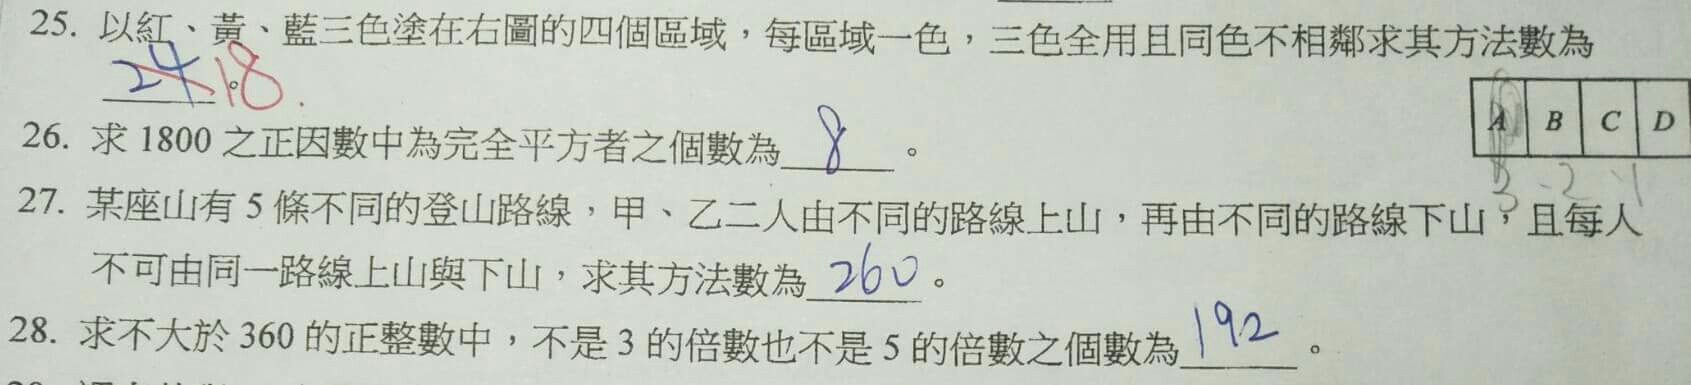 25. 以紅、黃、藍三色塗在右圖的四個區域，每區域一色，三色全用且同色不相鄰求其方法數為
24 18 。
A B C D
3 · 2 · 1
26. 求 1800 之正因數中為完全平方者之個數為 8 。
27. 某座山有 5 條不同的登山路線，甲、乙二人由不同的路線上山，再由不同的路線下山，且每人
不可由同一路線上山與下山，求其方法數為 260 。
28. 求不大於 360 的正整數中，不是 3 的倍數也不是 5 的倍數之個數為 192 。